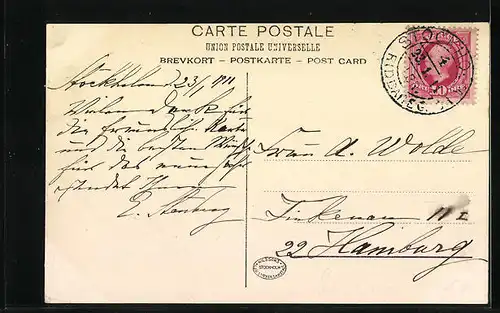 CARTE POSTALE
UNION POSTALE UNIVERSELLE
BREVKORT - POSTKARTE - POST CARD
STOCKHOLM
10
Stockholm 23/1 1911
Vielen Dank für
die freundl. Karte
und die besten
für das neue Jahr
E.
Frau A. Wolde
Finkenau 11 I
22 Hamburg
STOCKHOLM